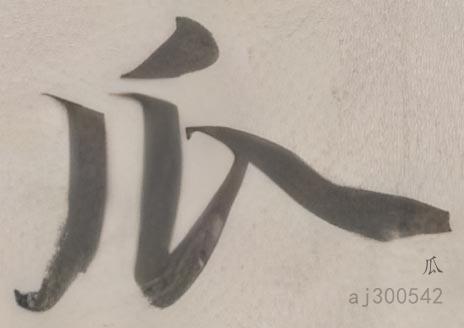 瓜
瓜
aj300542